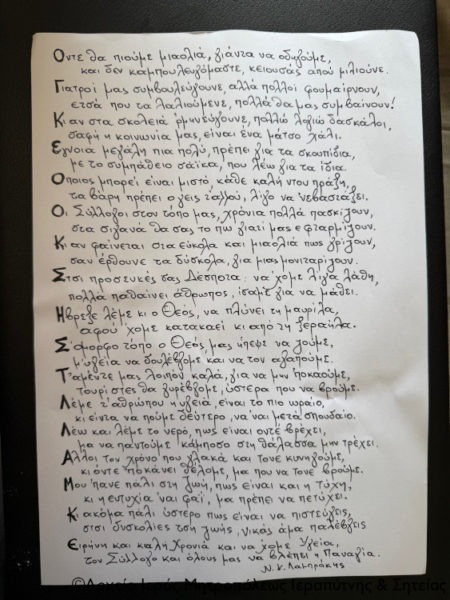 Οντε θα πιούμε μιαολιά, γιάντα να οδηγούμε,
και δεν καμπουλευγόμαστε, κειουσάς απού μιλιούνε.
Γιατροί μας συμβουλεύγουνε, αλλά πολλοί φουμαίρνουν,
ετσά που τα λαλιούμενε, πολλά θα μας συμβαίνουν!
Κι αν στα σκολειά 'ρμηνεύγουνε, πολλώ λογιώ δασκάλοι,
σαφή η κοινωνία μας, είναι ένα μάτσο χάλι.
Εγνοια μεγάλη πιο πολύ, πρέπει για τα σκουπίδια,
με το συμπάθειο σάικα, που λέω για τα ίδια.
Οποιος μπορεί είναι μιστό, κάθε καλή ντου πράξη,
τα βάρη πρέπει ο γεις τ'αλλού, λίγο να 'νεβαστάξει.
Οι Σύλλογοι στον τόπο μας, χρόνια πολλά πασκίζουν,
στα σιγανά θα σας το πω γιατί μας εφταρμίζουν.
Κι αν φαίνεται στα εύκολα και μιαολιά πως γρίζουν,
σαν έρθουνε τα δύσκολα, για μας μονιταρίζουν.
Στσι προσευκές σας Δέσποτα: να 'χομε λιγ'α λάθη,
πολλά παθαίνει άθρωπος, ίσαμε για να μάθει.
Ηβρεξε λέμε κι ο Θεός, να πλύνει τη μαυρίλα,
αφού 'χομε κατακαεί κι από τη ξεραήλα.
Σ'όμορφο τόπο ο Θεός, μας ήπεψε να ζούμε,
μ'υγεία να δουλέβγομε και να τον αγαπούμε.
Τ'αμέντε μας λοιπόν καλά, για να μην 'ποκαούμε,
τουρίστες θα γυρέβγομε, ύστερα που να βρούμε.
Λέμε τ'αθρώπου η υγειά, είναι το πιο ωραίο,
κι είντα να πούμε δεύτερο, να 'ναι μετά σπουδαίο.
Λέω και λέμε το νερό, πως είναι όντε βρέχει,
μα να παντούμε κάμποσο στη θάλασσα μην τρέχει.
Αλλοι τον χρόνο που γλακά και τονε κυνηγούμε,
κι όντε 'ποκάνει θέλομε, μα που να τονε βρούμε.
Μου 'πανε πάλι στη ζωή, πως είναι και η τύχη,
κι η ευτυχία 'ναι φαΐ, μα πρέπει να πετύχει.
Κι ακόμα πάλι ύστερο πως είναι να πιστεύγεις,
στσι δυσκολίες τση ζωής, νικάς άμα παλέβγεις
Ειρήνη και καλή Χρονιά και να χομε Υγεία,
τον Σύλλογο και όλους μας να βλέπει η Παναγία.
Ν. Κ. Λαμπράκης
©Αρχείο Ιεράς Μητροπόλεως Ιεραπύτνης & Σητείας